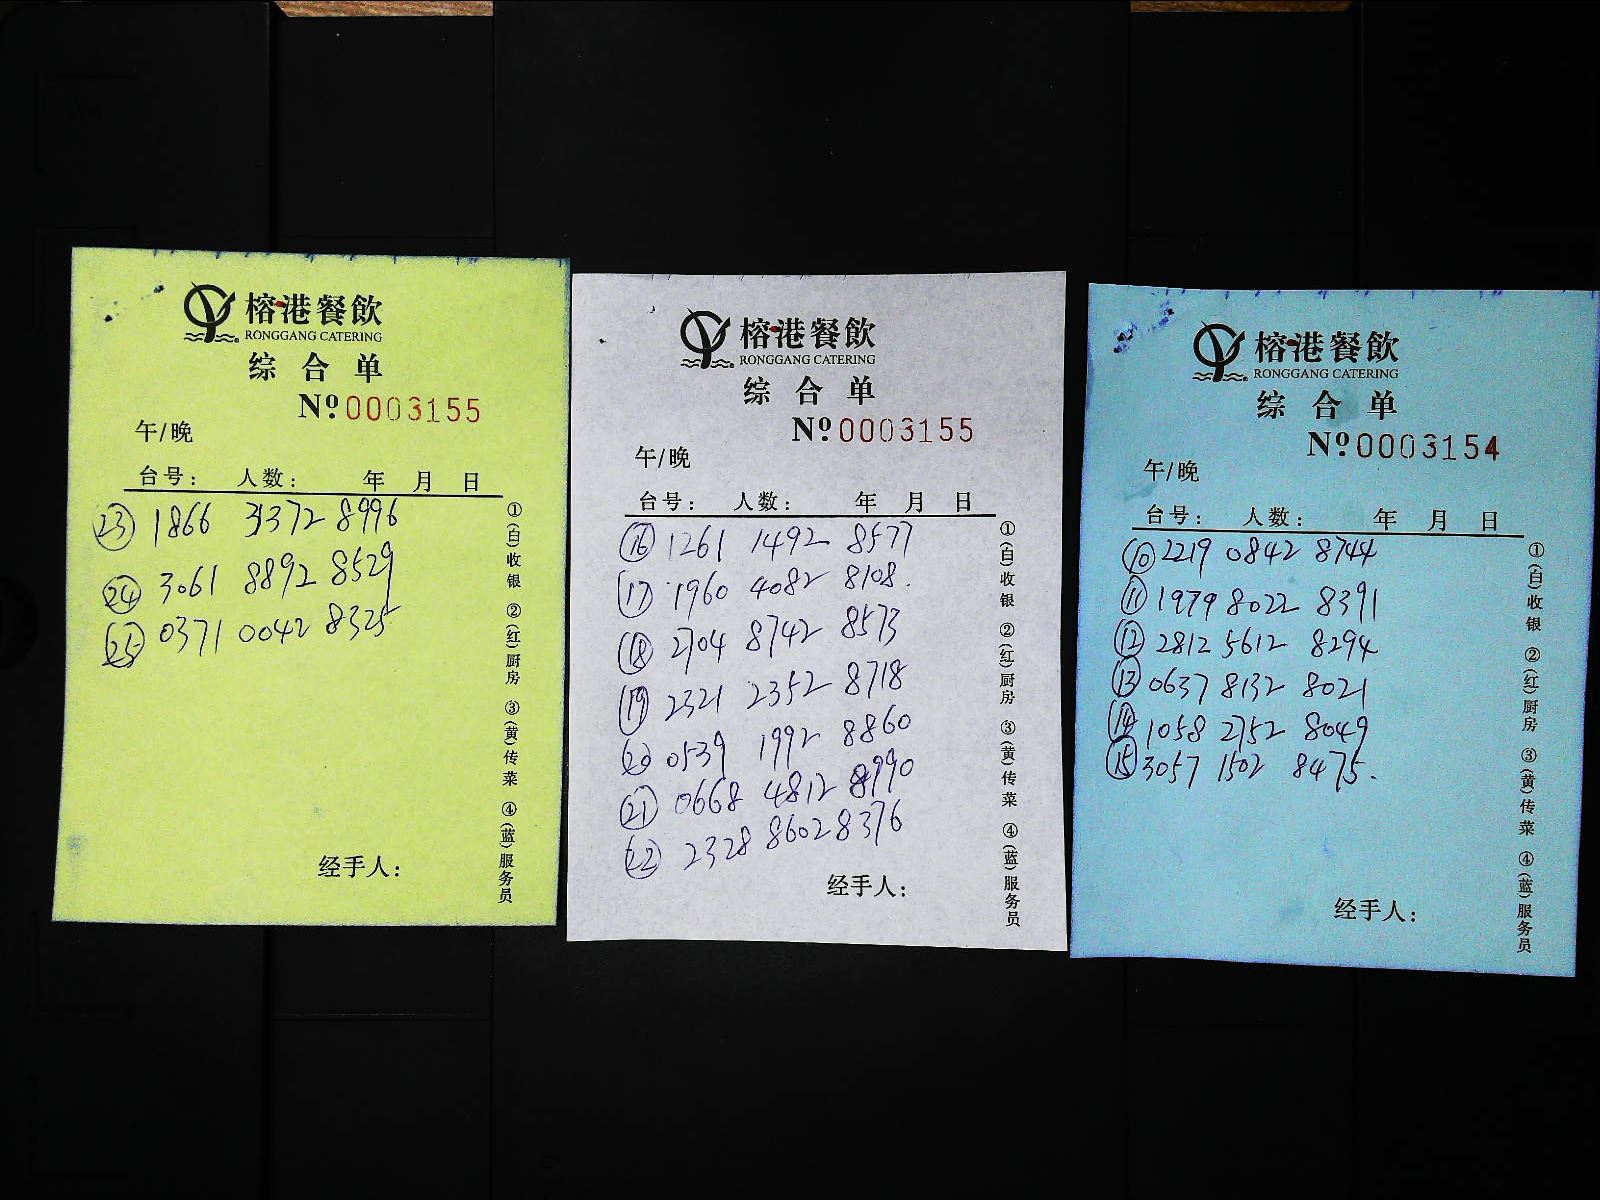 榕港餐飲
RONGGANG CATERING
综合单
Nº0003155
午/晚
台号: 人数: 年 月 日
㉓ 1866 31372 8996
㉔ 3061 8892 8529
㉕ 0371 0042 8325
经手人:
①(白)收银 ②(红)厨房 ③(黄)传菜 ④(蓝)服务员
榕港餐飲
RONGGANG CATERING
综合单
Nº0003155
午/晚
台号: 人数: 年 月 日
⑯ 1261 1492 8577
⑰ 1960 4082 8108.
⑱ 2704 8742 8573
⑲ 2321 2352 8718
⑳ 0539 1992 8860
㉑ 0668 4812 8990
㉒ 2328 8602 8376
经手人:
①(白)收银 ②(红)厨房 ③(黄)传菜 ④(蓝)服务员
榕港餐飲
RONGGANG CATERING
综合单
Nº0003154
午/晚
台号: 人数: 年 月 日
⑩ 2219 0842 8744
⑪ 1979 8022 8391
⑫ 2812 5612 8294
⑬ 0637 8132 8021
⑭ 1058 2752 8049
⑮ 3057 1502 8475.
经手人:
①(白)收银 ②(红)厨房 ③(黄)传菜 ④(蓝)服务员